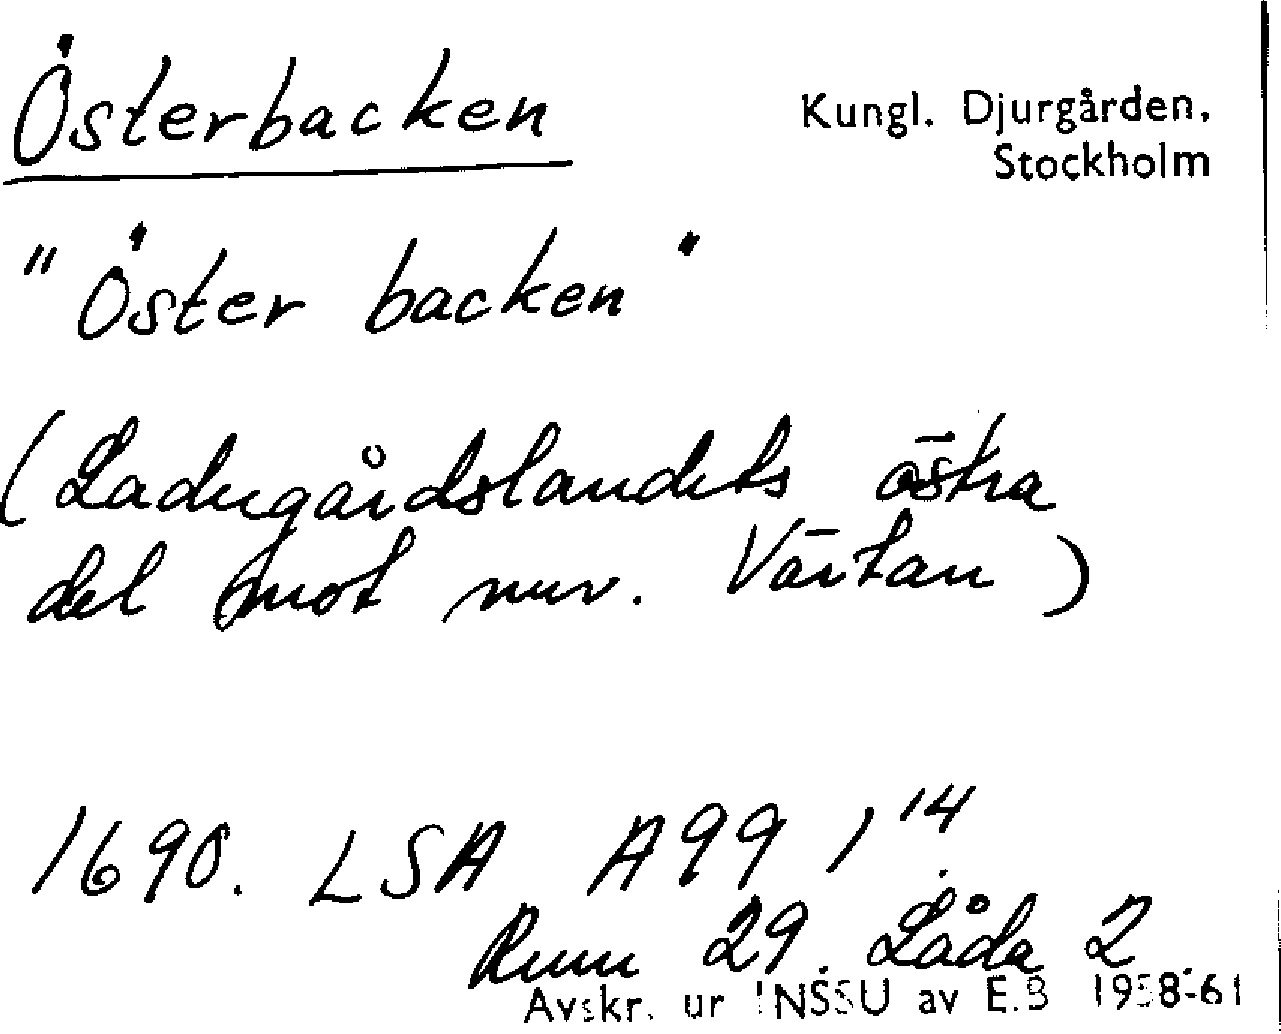 Österbacken
Kungl. Djurgården,
Stockholm
"Öster backen"
(Ladugårdslandets östra
del mot nuv. Värtan)
1690. LSA A99 1 14
Rum 29. Låda 2
Avskr. ur INSSU av E.B 1958-61